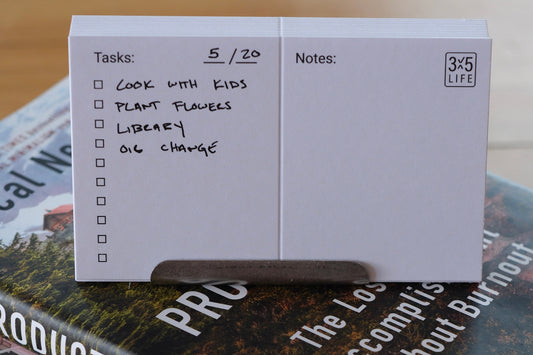 Tasks: 5/20
COOK WITH KIDS
PLANT FLOWERS
LIBRARY
OIG CHANGE
Notes:
3x5
LIFE
cal No
PRO
The Los
Accomplis
out Burnout
PRODUCT